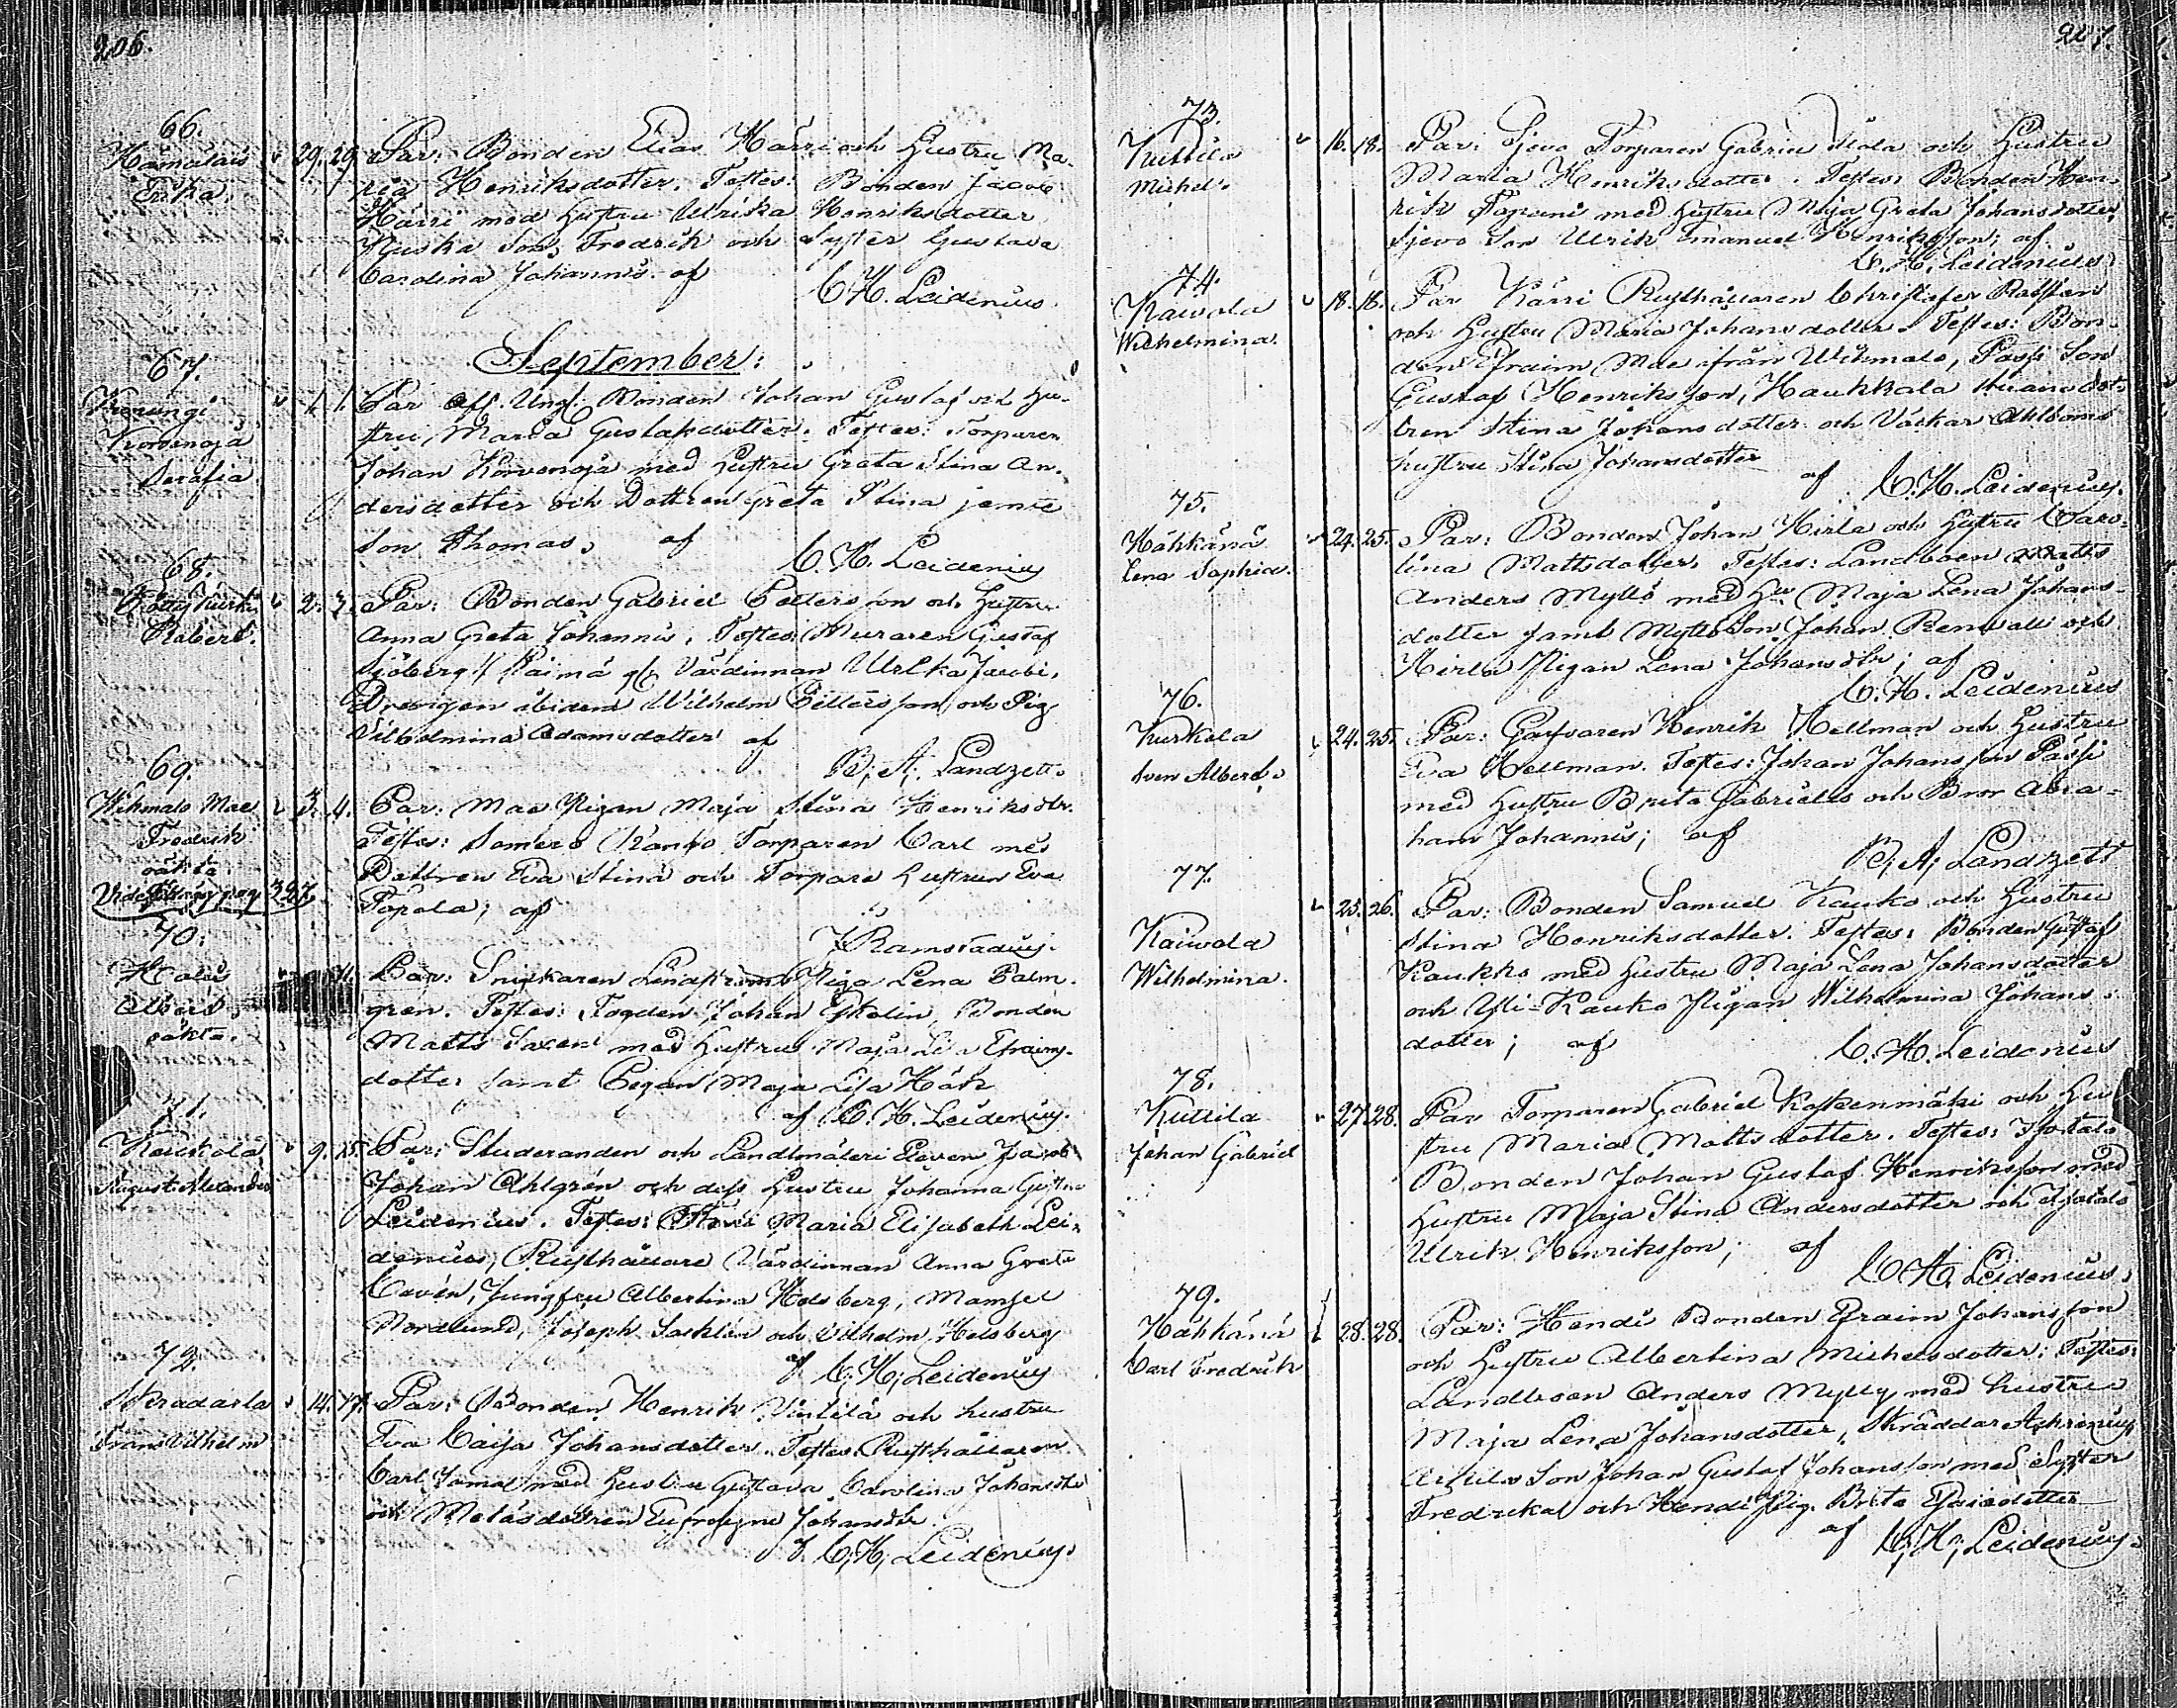 206.
66.
Hämäläis
Erika.
29. 29. Par: Bonden Elias Härri och Hustru Ma-
ria Henriksdotter. Testes: Bonden Jacob
Härri med Hustru Ulrika Henriksdotter
Son Fredrik och Syster Gustava
Carolina Johannis. af
C. H. Leidenius.
September:
67.
Serafia
1. 1. Par Bonden Johan Gustaf och Hu-
stru Maria Gustafsdotter. Testes: Torparen
Johan Korvenoja med Hustru Greta Stina An-
dersdotter och Dottren Greta Stina jemte
Son Thomas, af
C. H. Leidenius
68.
Robert.
2. 3. Par: Bonden Gabriel och Hustru
Anna Greta Johannis. Testes Muraren Gustaf
Sjöberg Värdinnan Ulrika Jacobi,
Drengen ibidem Wilhelm och Pig
Vilhelmina Adamsdotter af
B. A. Landzett
69.
Wihmalo Mae
Fredrik
oäkta.
Vide pag 327.
3. 4. Par: Mae Pigan Maja Stina Henriksdtr.
Testes: Somero Torparen Carl med
Dottren Eva Stina och Torpare Hustrun Eva
Topola; af
Ramstadius.
70.
Albert,
oäkta.
11. Par: Snickaren Piga Lena Palm-
gren. Testes: Fogden Johan Ekelin, Bonden
Matts Saxen med Hustru Maja Lisa Efraims-
dotter samt Pigan Maja Lisa
af C. H. Leidenius.
71.
Keikola
August Alexander
9. 15. Par: Studeranden och Landtmäteri Eleven Jacob
Johan Ahlgrén och dess Hustru Johanna
Leidenius. Testes: Maria Elisabeth Lei-
denius, Rusthållare Värdinnan Anna Greta
Cavén, Jungfru Albertina Helsberg, Mamsel
Nordlund, Joseph och Vilhelm Helsberg
af C. H. Leidenius
72.
Frans Vilhelm
14. 17. Par: Bonden Henrik och hustru
Eva Caisa Johansdotter. Testes: Rusthållaren
Carl med Hustru Gustava Carolina Johansdtr
och Eufrosyne Johansdtr.
af C. H. Leidenius.
207.
73.
Kuttila
Michel.
16. 18. Par: Sjevo Torparen Gabriel och Hustru
Maria Henriksdotter. Testes: Bonden Hen-
rik Tapani med Hustru Maja Greta Johansdotter
Sjevo Son Ulrik Emanuel Henriksson; af
C. H. Leidenius.
74.
Kaivola
Wilhelmina.
18. 18. Par Kärri Rusthållaren Christofer
och Hustru Maria Johansdotter. Testes: Bon-
den Efraim Mae ifrån Wihmalo, Passi Son
Gustaf Henriksson, Haukkala
Stina Johansdotter och
hustru Stina Johansdotter
af C. H. Leidenius.
75.
Hähkänä
Lena Sophia.
24. 25. Par: Bonden Johan Hirla och Hustru Caro-
lina Mattsdotter. Testes: Landboen Matts
Anders Myllö med Hu Maja Lena Johans-
dotter samt Myllö Son Johan och
Hirla Pigan Lena Johansdtr; af
C. H. Leidenius
76.
Kurkela
Sven Albert.
24. 25. Par: Garfvaren Henrik Hellman och Hustru
Eva Hellman. Testes: Johan Johansson Passi
med Hustru Brita Gabriels och Bror Abra-
ham Johannis; af
B. A. Landzett
77.
Kaivola
Wilhelmina.
25. 26. Par: Bonden Samuel Kauko och Hustru
Stina Henriksdotter. Testes: Bonden Gustaf
Kaukko med Hustru Maja Lena Johansdotter
och Yli-Kauko Pigan Wilhelmina Johans-
dotter; af
C. H. Leidenius
78.
Kuttila
Johan Gabriel
27. 28. Par Torparen Gabriel Koskenmäki och Hu-
stru Maria Mattsdotter. Testes: Isotalo
Bonden Johan Gustaf Henriksson med
Hustru Maja Stina Andersdotter och Isotalo
Ulrik Henriksson; af
C. H. Leidenius.
79.
Hähkänä
Carl Fredrik
28. 28. Par: Hendi Bonden Efraim Johansson
och Hustru Albertina Michelsdotter: Testes:
Landboen Anders Mylly med hustru
Maja Lena Johansdotter, Skräddar
Son Johan Gustaf Johansson med Syster
Fredrika och Hendi Pig. Brita Esaiædotter
af C. H. Leidenius.